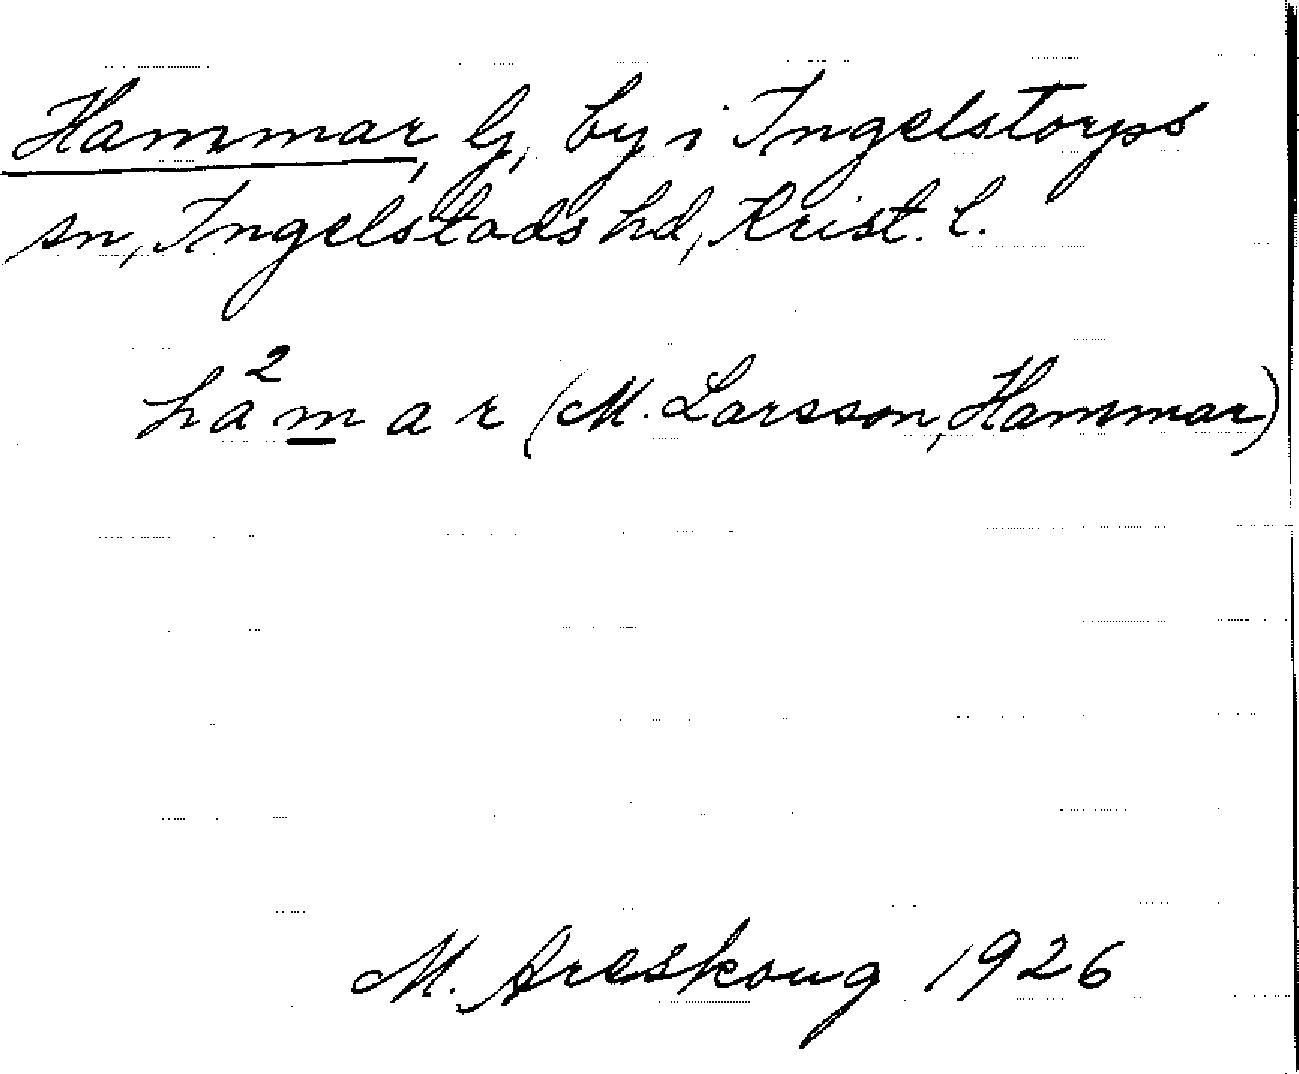 Hammar, lj, by i Ingelstorps
sn, Ingelstads hd, Krist. l.
ha²mar (M. Larsson, Hammar)
M. Areskoug 1926